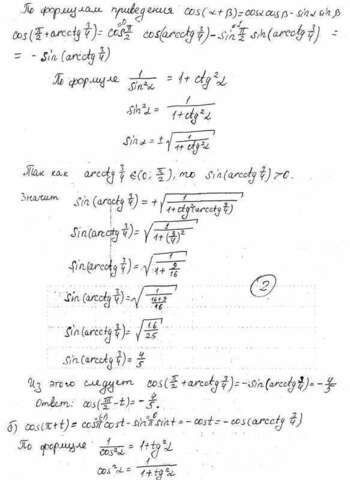 По формулам приведения cos(α+β)=cosα cosβ-sinα sinβ
cos(π/2+arcctg 3/4)=cos π/2 cos(arcctg 3/4)-sin π/2 sin(arcctg 3/4)=
= -sin(arcctg 3/4)
По формуле 1/sin²α = 1+ctg²α
sin²α = 1/(1+ctg²α)
sinα = ±√(1/(1+ctg²α))
Так как arcctg 3/4 ∈(0; π/2), то sin(arcctg 3/4)>0.
Значит sin(arcctg 3/4)=+√(1/(1+ctg²(arcctg 3/4)))
sin(arcctg 3/4)=√(1/(1+(3/4)²))
sin(arcctg 3/4)=√(1/(1+9/16))
sin(arcctg 3/4)=√(1/((16+9)/16))
2
sin(arcctg 3/4)=√(16/25)
sin(arcctg 3/4)=4/5
Из этого следует cos(π/2+arcctg 3/4)=-sin(arcctg 3/4)=-4/5
Ответ: cos(π/2-t)=-4/5.
б) cos(π+t)=cosπ cost-sinπ sint=-cost=-cos(arcctg 3/4)
По формуле 1/cos²α = 1+tg²α
cos²α = 1/(1+tg²α)